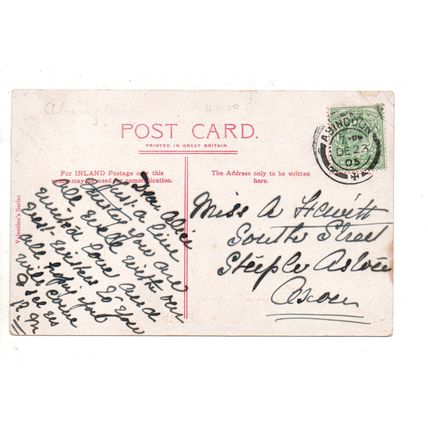 Abingdon
POST CARD.
PRINTED IN GREAT BRITAIN
For INLAND Postage only this
space may be used for communication.
The Address only to be written
here.
Valentine's Series
Dear Alice
Just a line
you are
all well with our
united love and
best wishes to you
all hoping you
will come
& see us
R M
ABINGDON
DE 23
05
Miss A
South Street
Steeple Aston
Oxon